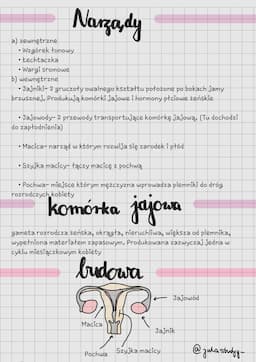 Narządy
a) zewnętrzne
• Wzgórek łonowy
• Łechtaczka
• Wargi sromowe
b) wewnętrzne
• Jajniki- 2 gruczoły owalnego kształtu położone po bokach jamy
brzusznej. Produkują komórki jajowe i hormony płciowe żeńskie
• Jajowody- 2 przewody transportujące komórkę jajową. (Tu dochodzi
do zapłodnienia)
• Macica- narząd w którym rozwija się zarodek i płód
• Szyjka macicy- łączy macicę z pochwą
• Pochwa- miejsce którym mężczyzna wprowadza plemniki do dróg
rozrodczych kobiety
komórka jajowa
gameta rozrodcza żeńska, okrągła, nieruchliwa, większa od plemnika,
wypełniona materiałem zapasowym. Produkowana zazwyczaj jedna w
cyklu miesiączkowym kobiety
budowa
Jajowód
Macica
Jajnik
Pochwa
Szyjka macicy